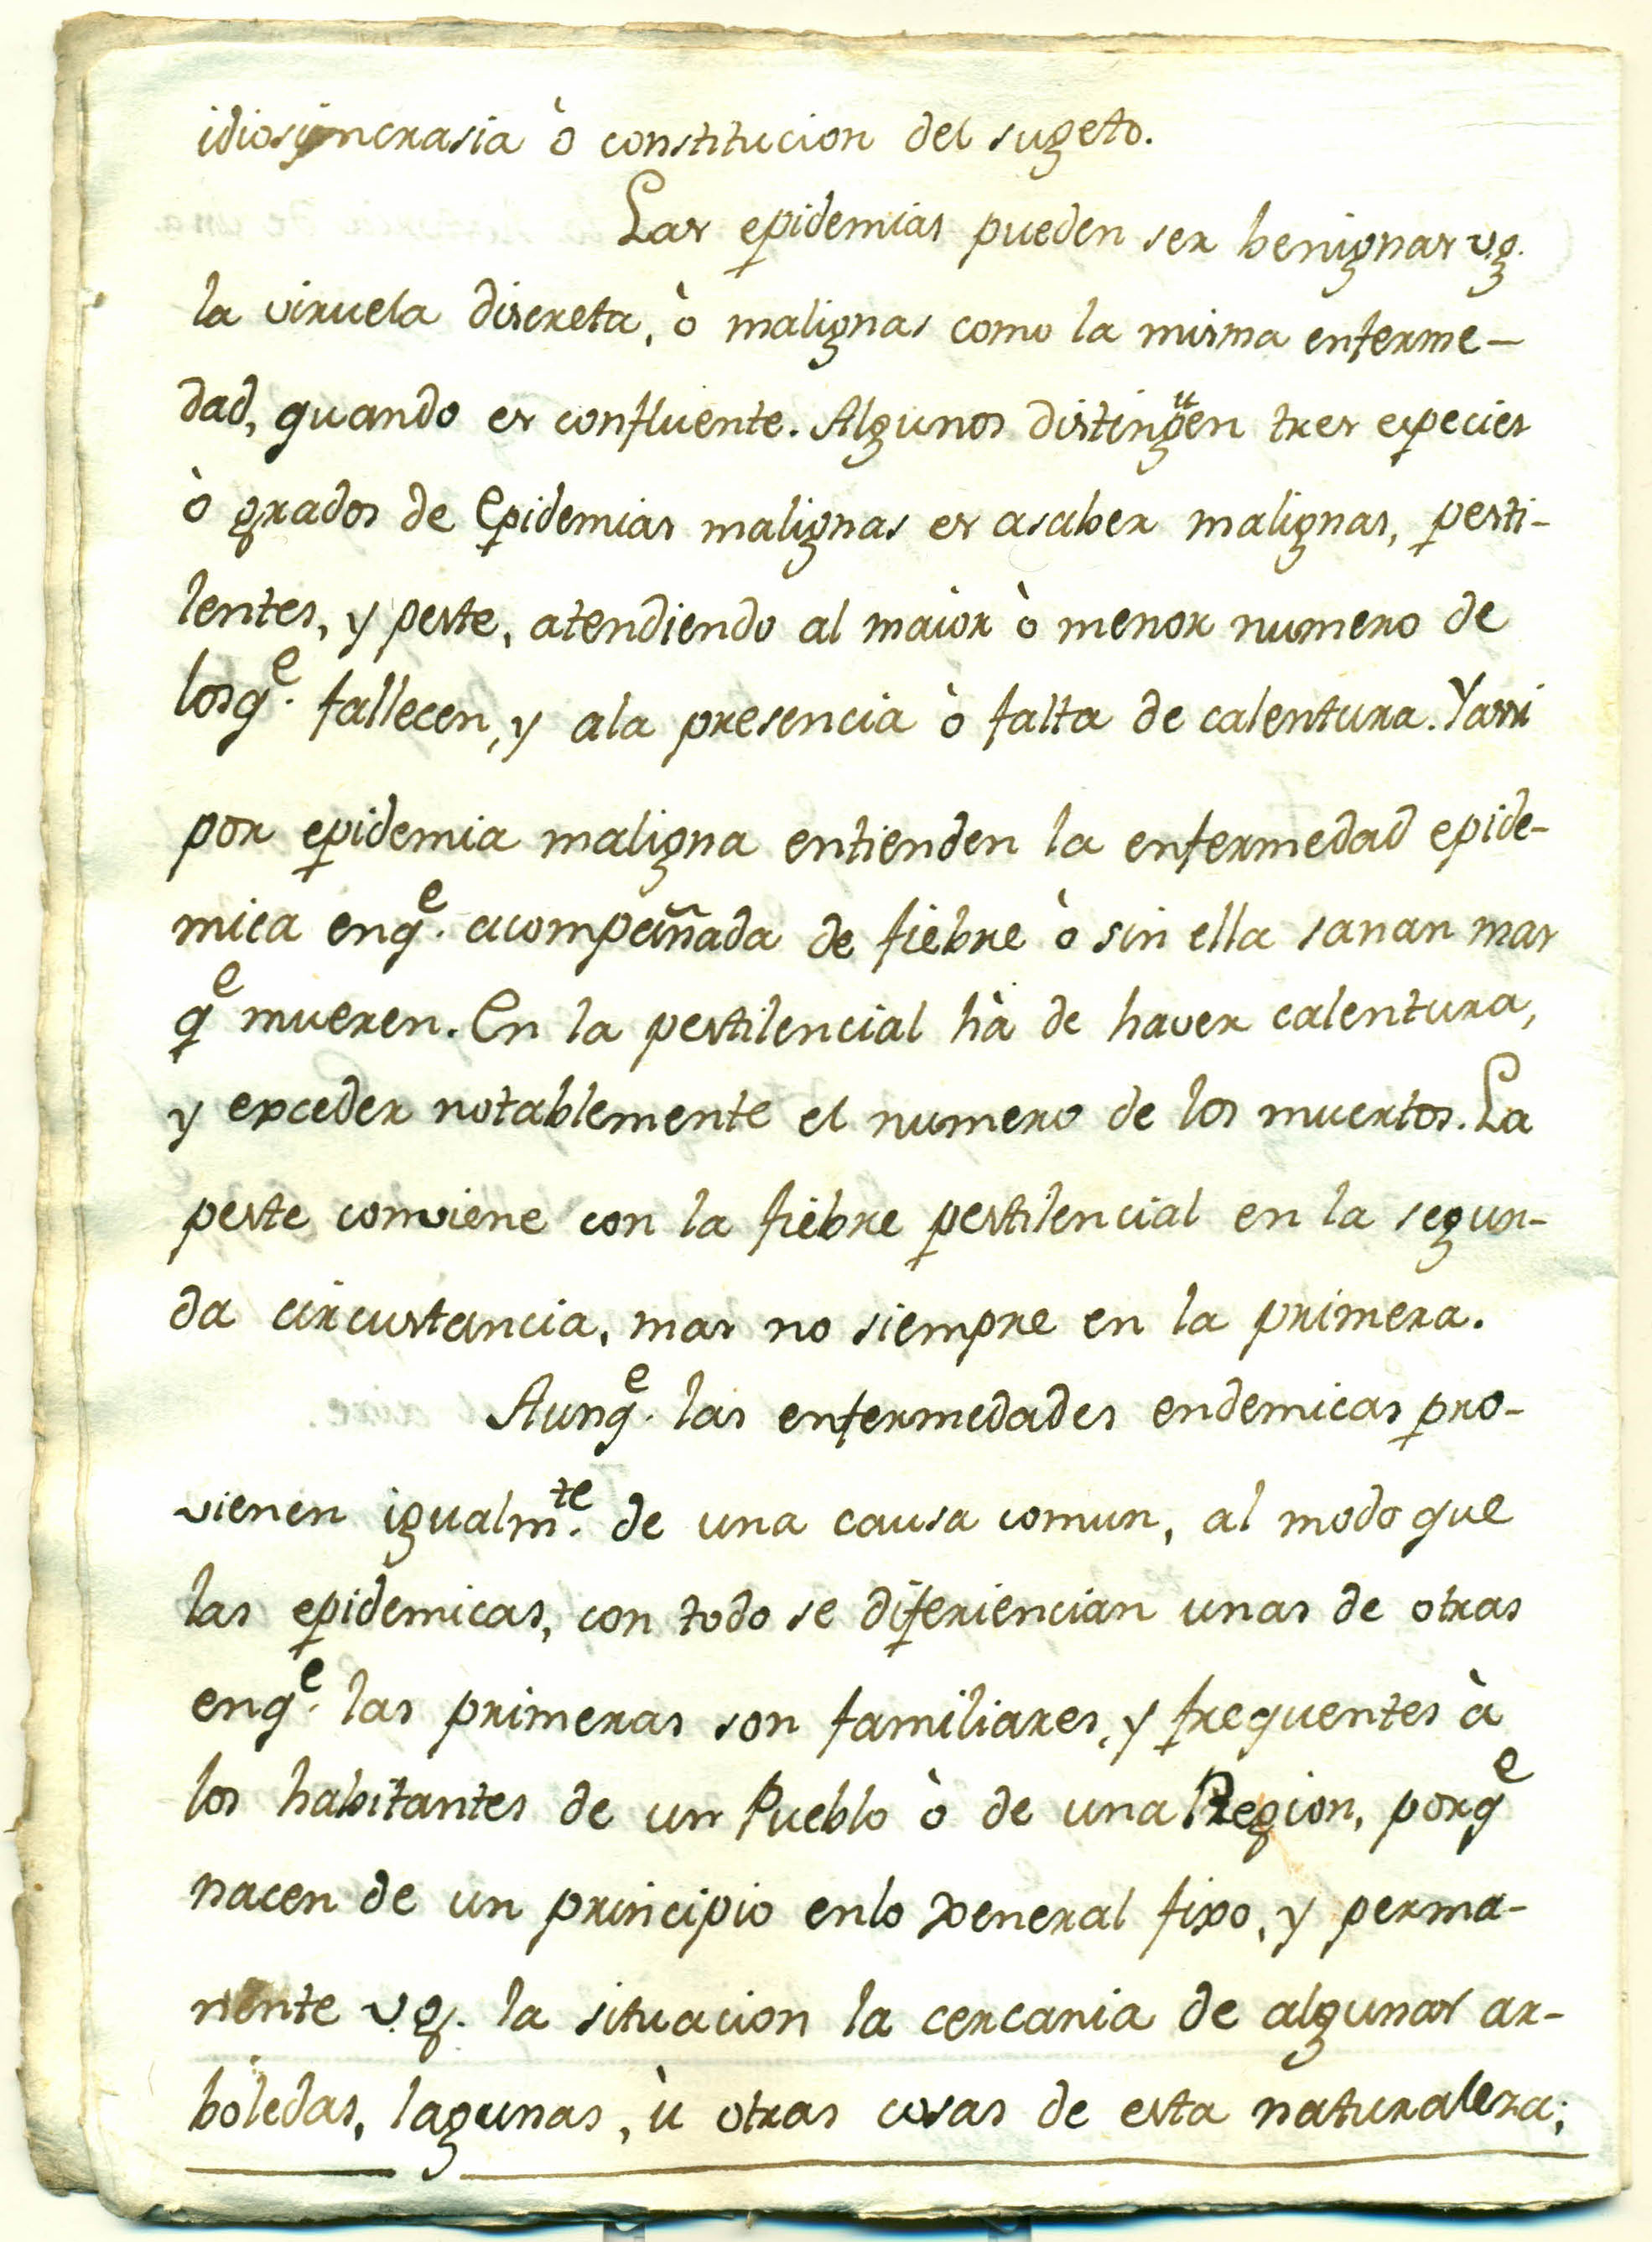 idiosyncrasia ò constitucion del sugeto.
Las epidemias pueden ser benignas v.g.
la viruela discreta, ò malignas como la misma enferme-
dad, quando es confluente. Algunos distinguen tres especies
ò grados de Epidemias malignas es asaber malignas, pesti-
lentes, y peste, atendiendo al maior ò menor numero de
losqe. fallecen, y ala presencia ò falta de calentura. Yassi
por epidemia maligna entienden la enfermedad epide-
mica enqe. acompañada de fiebre ò sin ella sanan mas
qe mueren. En la pestilencial hà de haver calentura,
y exceder notablemente el numero de los muertos. La
peste conviene con la fiebre pestilencial en la segun-
da circustancia, mas no siempre en la primera.
Aunqe. las enfermedades endemicas pro-
vienen igualmte. de una causa comun, al modo que
las epidemicas, con todo se diferiencian unas de otras
enqe. las primeras son familiares, y frequentes à
los habitantes de un Pueblo ò de una Region, porqe
nacen de un principio enlo xeneral fixo, y perma-
nente v.g. la situacion la cercania de algunas ar-
boledas, lagunas, ù otras cosas de esta naturaleza;